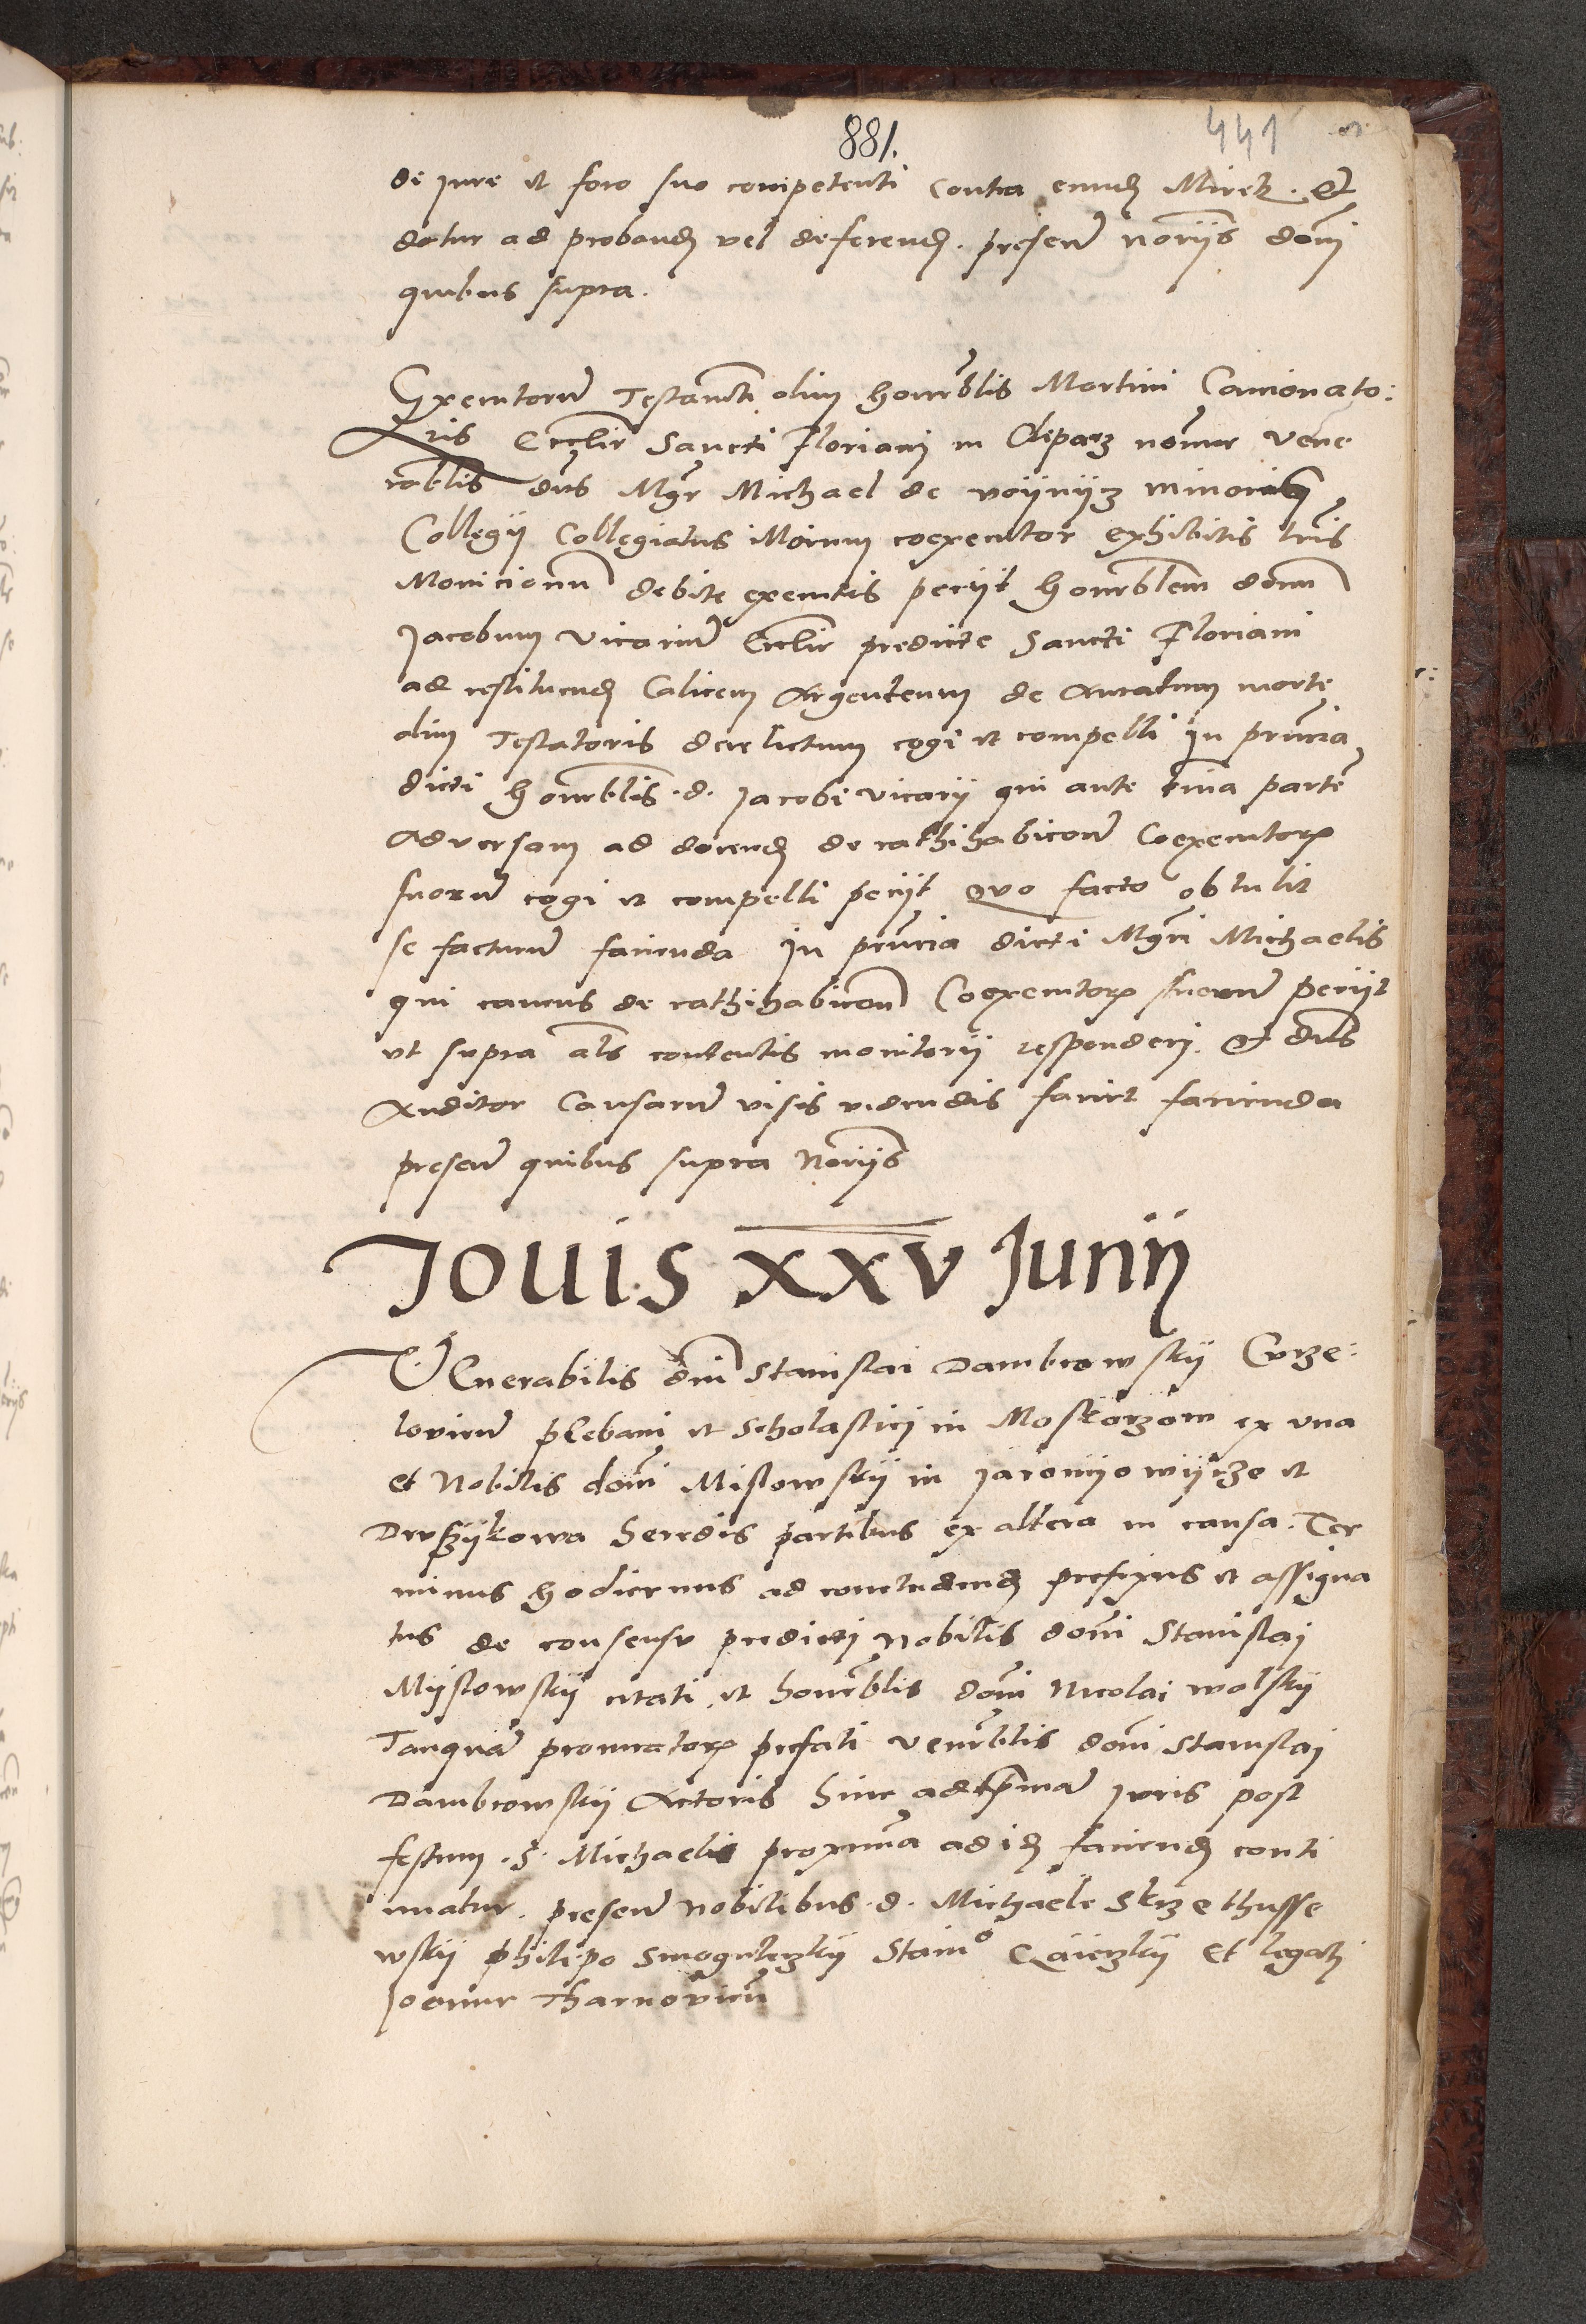 881.
441
de jure et foro suo competenti contra eund Miretz. Et
datur ad proband vel deferend. presen noriis domi
quibus supra.
Executorum Testamti olim honorblis Martini Concionato:
ris Ecclie Sancti Floriani in Cleparz nomine vene
rablis dns Mgr Michael de minoris
Collegij Collegiatus Moinum coexecutor exhibitis lris
Monicionum debite executis peciit honorblem domm
Jacobum vicarium Ecclie predicte Sancti Floriani
ad restituend Calicem Argenteum de Auratum morte
olim Testatoris derelictum cogi et compelli In prncia
dicti honorblis d. Jacobi vicarij qui ante omnia partem
Adversam ad docend de rathihabicone Coexecutorum
suorum cogi et compelli peciit Quo facto obtulit
se facturum facienda In prncia dicti Mgri Michaelis
qui cavens de rathihabicone Coexecutorum suorum peciit
ut supra als contentis monitorij responderi. Et dns
Auditor Causarum visis videndis faciet facienda
presen quibus supra Noriis
Jouis XXV Junij
VEnerabilis dni Stanislai Dambrowskij Curze:
lovien plebani et Scholastici in Moskorzow ex una
et Nobilis domi Mislowskij in et
heredis partibus ex altera in causa. Ter
minus hodiernus ad concludend prefixus et assigna
tus de consensu predicti Nobilis domi Stanislai
Myslowskij citati et honorblis domi Nicolai wolskij
Tanquam procuratoris prefati venerblis domi Stanislai
Dambrowskij Actoris hinc ad primam Juris post
festum S. Michaelis proximum ad id faciend conti
nuatur. presen Nobilibus d. Michaele Skrzethusse
wskij philipo Smogulezkij Stanio et legati
Joanne Tharnovien